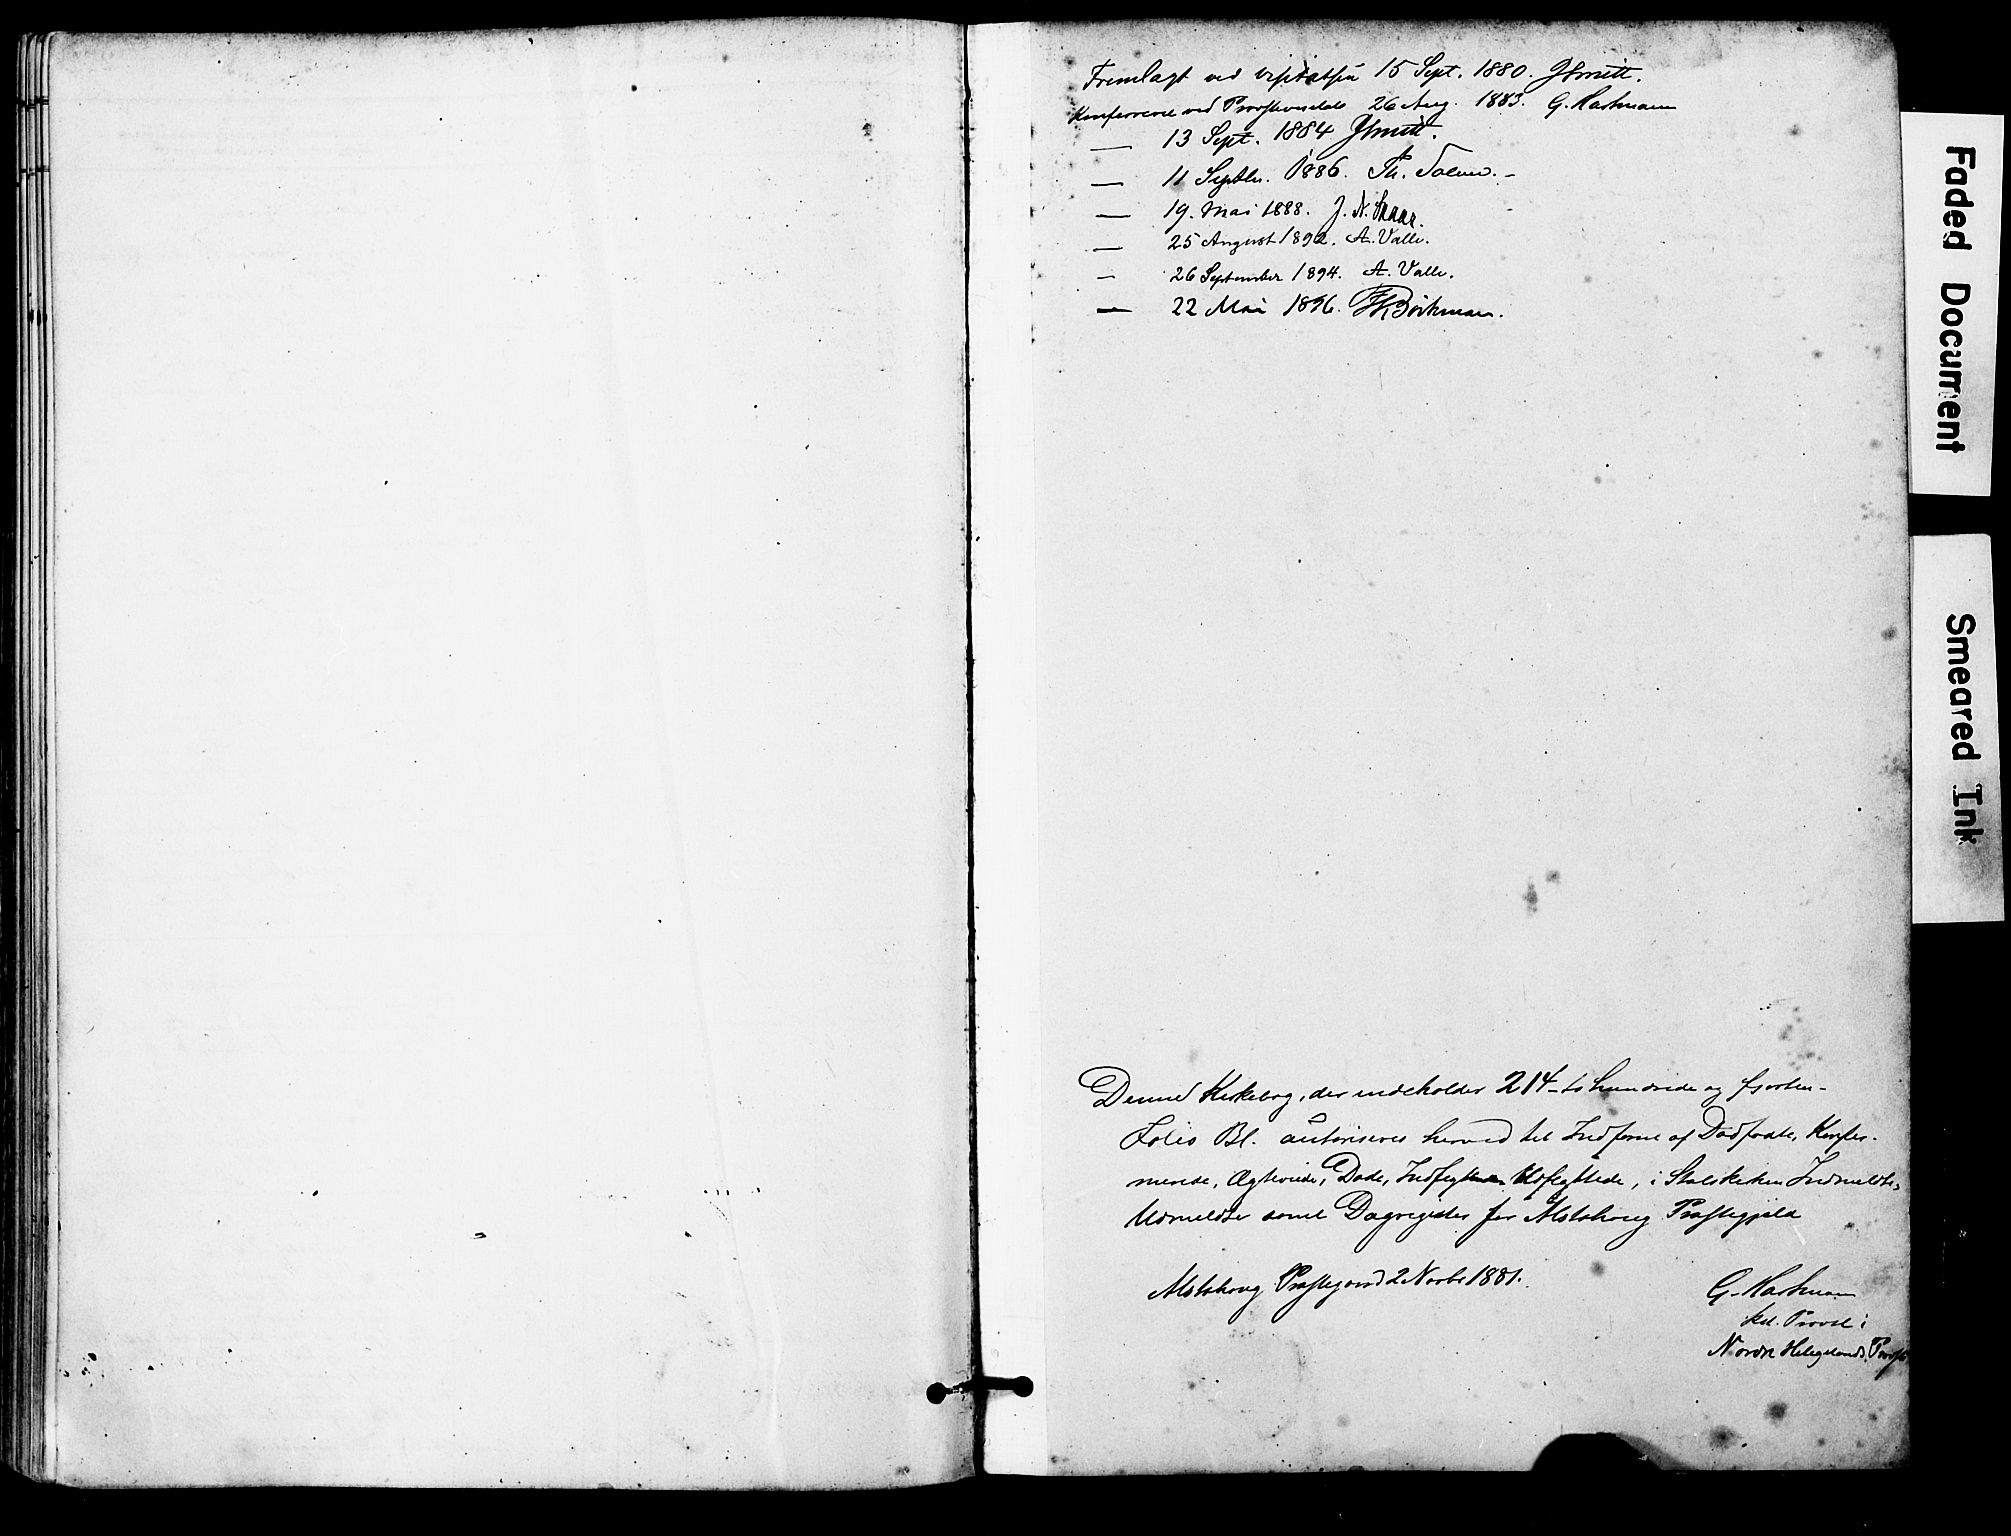 Fremlagt ved Visitatsen 15 Sept. 1880. JSmitt.
Konfereret ved Provstevisitats 26 Aug. 1883. G. Hartmann
— 13 Sept. 1884 JSmitt.
— 11 Septbr. 1886. Th.
— 19. Mai 1888. J. N. Skaar.
— 25 August 1892. A. Valle.
— 26 September 1894. A. Valle.
— 22 Mai 1896. Böckman.
Denne Kirkebog, der indeholder 214 - to hundrede og fjorten -
Folio Bl. autoriseres herved til Indførsel af Dødfødte, Konfir-
merede, Ægteviede, Døde, Indflyttede Udflyttede, i Statskirken Indmeldte,
Udmeldte samt Dagregister for Alstahoug Præstegjeld
Alstahoug Præstegaard 2 Novbr 1881.
G. Hartmann
kst. Provst i
Nordre Helgelands Provsti
Faded Document
Smeared Ink